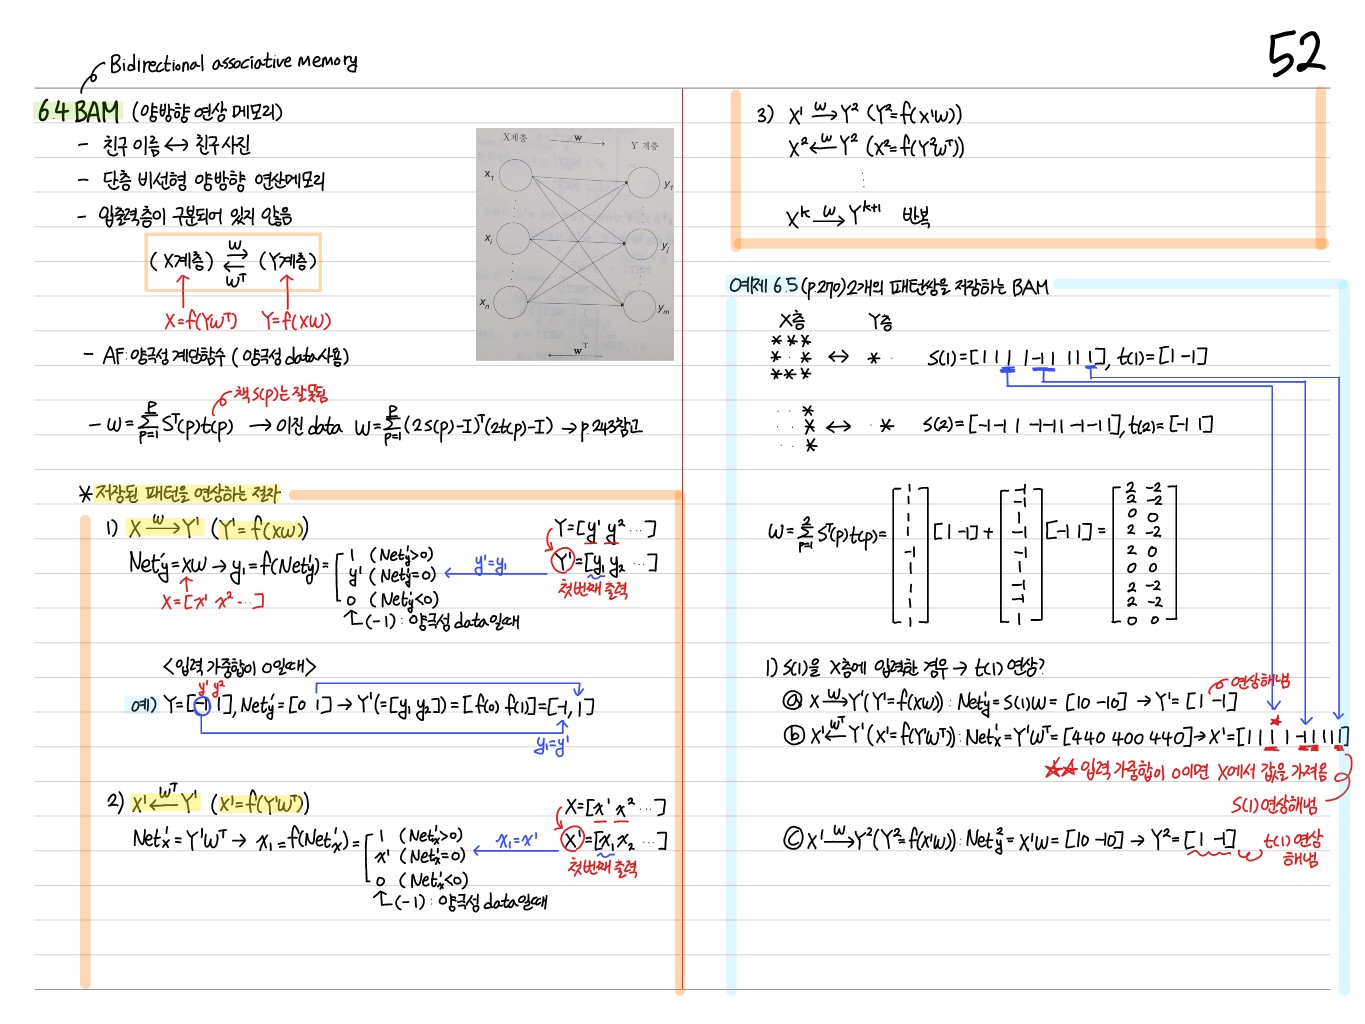 52
Bidirectional associative memory
6.4 BAM (양방향 연상 메모리)
- 친구 이름 ↔ 친구 사진
- 단층 비선형 양방향 연산메모리
- 입출력층이 구분되어 있지 않음
(X계층) W ⇄ Wᵀ (Y계층)
X=f(YWᵀ) Y=f(XW)
X계층 w Y 계층
x₁ y₁
xᵢ yⱼ
xₙ yₘ
wᵀ
- AF: 양극성 계단함수 (양극성 data 사용)
책 S(p)는 잘못됨
- W = Σ(p=1, P) Sᵀ(p)t(p) → 이진 data W = Σ(p=1, P) (2S(p)-I)ᵀ(2t(p)-I) → p.243참고
* 저장된 패턴을 연상하는 절차
1) X —W→ Y' (Y'=f(XW))
Y=[y¹ y² ...]
Net'y = XW → y₁ = f(Net'y) = [ 1 (Net'y>0)
y' (Net'y=0) ← y'=y₁ Y'=[y₁ y₂ ...]
첫번째 출력
0 (Net'y<0)
X=[x¹ x² ...]
(-1): 양극성 data일때
<입력 가중합이 0일때>
y¹ y²
예) Y=[-1 1], Net'y=[0 1] → Y'(=[y₁ y₂])=[f(0) f(1)]=[-1, 1]
y₁=y'
2) X' ←Wᵀ— Y' (X'=f(Y'Wᵀ))
X=[x¹ x² ...]
Net'x = Y'Wᵀ → x₁=f(Net'x) = [ 1 (Net'x>0)
x' (Net'x=0) ← x₁=x' X'=[x₁ x₂ ...]
첫번째 출력
0 (Net'x<0)
(-1): 양극성 data일때
3) X' —W→ Y² (Y²=f(X'W))
X² ←W— Y² (X²=f(Y²Wᵀ))
⋮
Xᵏ —W→ Yᵏ⁺¹ 반복
예제 6.5 (p.270) 2개의 패턴쌍을 저장하는 BAM
X층 Y층
* * *
* · * ↔ * · S(1)=[1 1 1 1 -1 1 1 1 1], t(1)=[1 -1]
* * *
· · *
· · * ↔ · * S(2)=[-1 -1 1 -1 -1 1 -1 -1 1], t(2)=[-1 1]
· · *
W = Σ(p=1, 2) Sᵀ(p)t(p) = [1 1 1 1 -1 1 1 1 1] [1 -1] + [-1 -1 1 -1 -1 1 -1 -1 1] [-1 1] = [2 -2
2 -2
0 0
2 -2
2 0
0 0
2 -2
2 -2
0 0]
1) S(1)을 X층에 입력한 경우 → t(1) 연상?
연상해냄
ⓐ X —W→ Y' (Y'=f(XW)) : Net'y = S(1)W = [10 -10] → Y' = [1 -1]
ⓑ X' ←Wᵀ— Y' (X'=f(Y'Wᵀ)) : Net'x = Y'Wᵀ = [440 400 440] → X' = [1 1 1 1 -1 1 1 1 1]
★★ 입력 가중합이 0이면 X에서 값을 가져옴
S(1) 연상해냄
ⓒ X' —W→ Y² (Y²=f(X'W)) : Net²y = X'W = [10 -10] → Y² = [1 -1] t(1) 연상
해냄